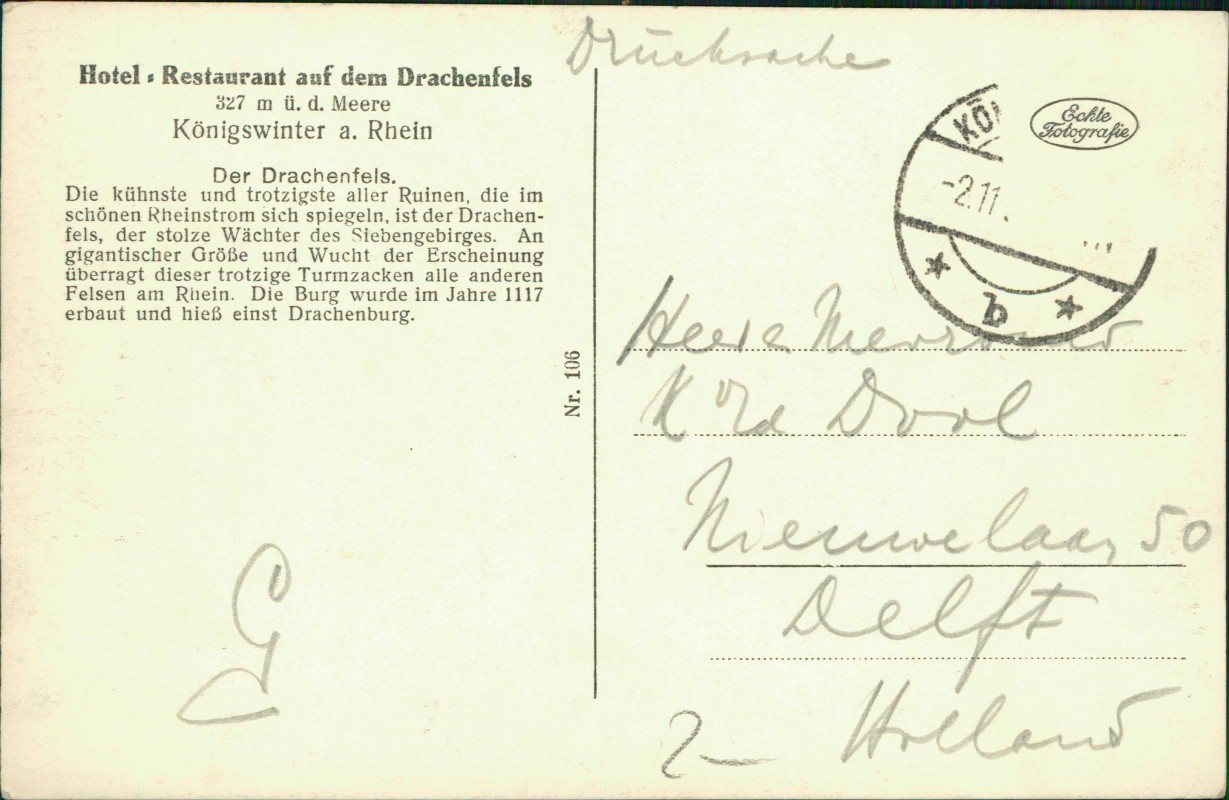 Drucksache
Hotel-Restaurant auf dem Drachenfels
327 m ü. d. Meere
Königswinter a. Rhein
Der Drachenfels.
Die kühnste und trotzigste aller Ruinen, die im
schönen Rheinstrom sich spiegeln, ist der Drachen-
fels, der stolze Wächter des Siebengebirges. An
gigantischer Größe und Wucht der Erscheinung
überragt dieser trotzige Turmzacken alle anderen
Felsen am Rhein. Die Burg wurde im Jahre 1117
erbaut und hieß einst Drachenburg.
Nr. 106
KÖ
-2.11.
* b *
Echte
Fotografie
Dool
Nieuwelaan 50
Delft
Holland